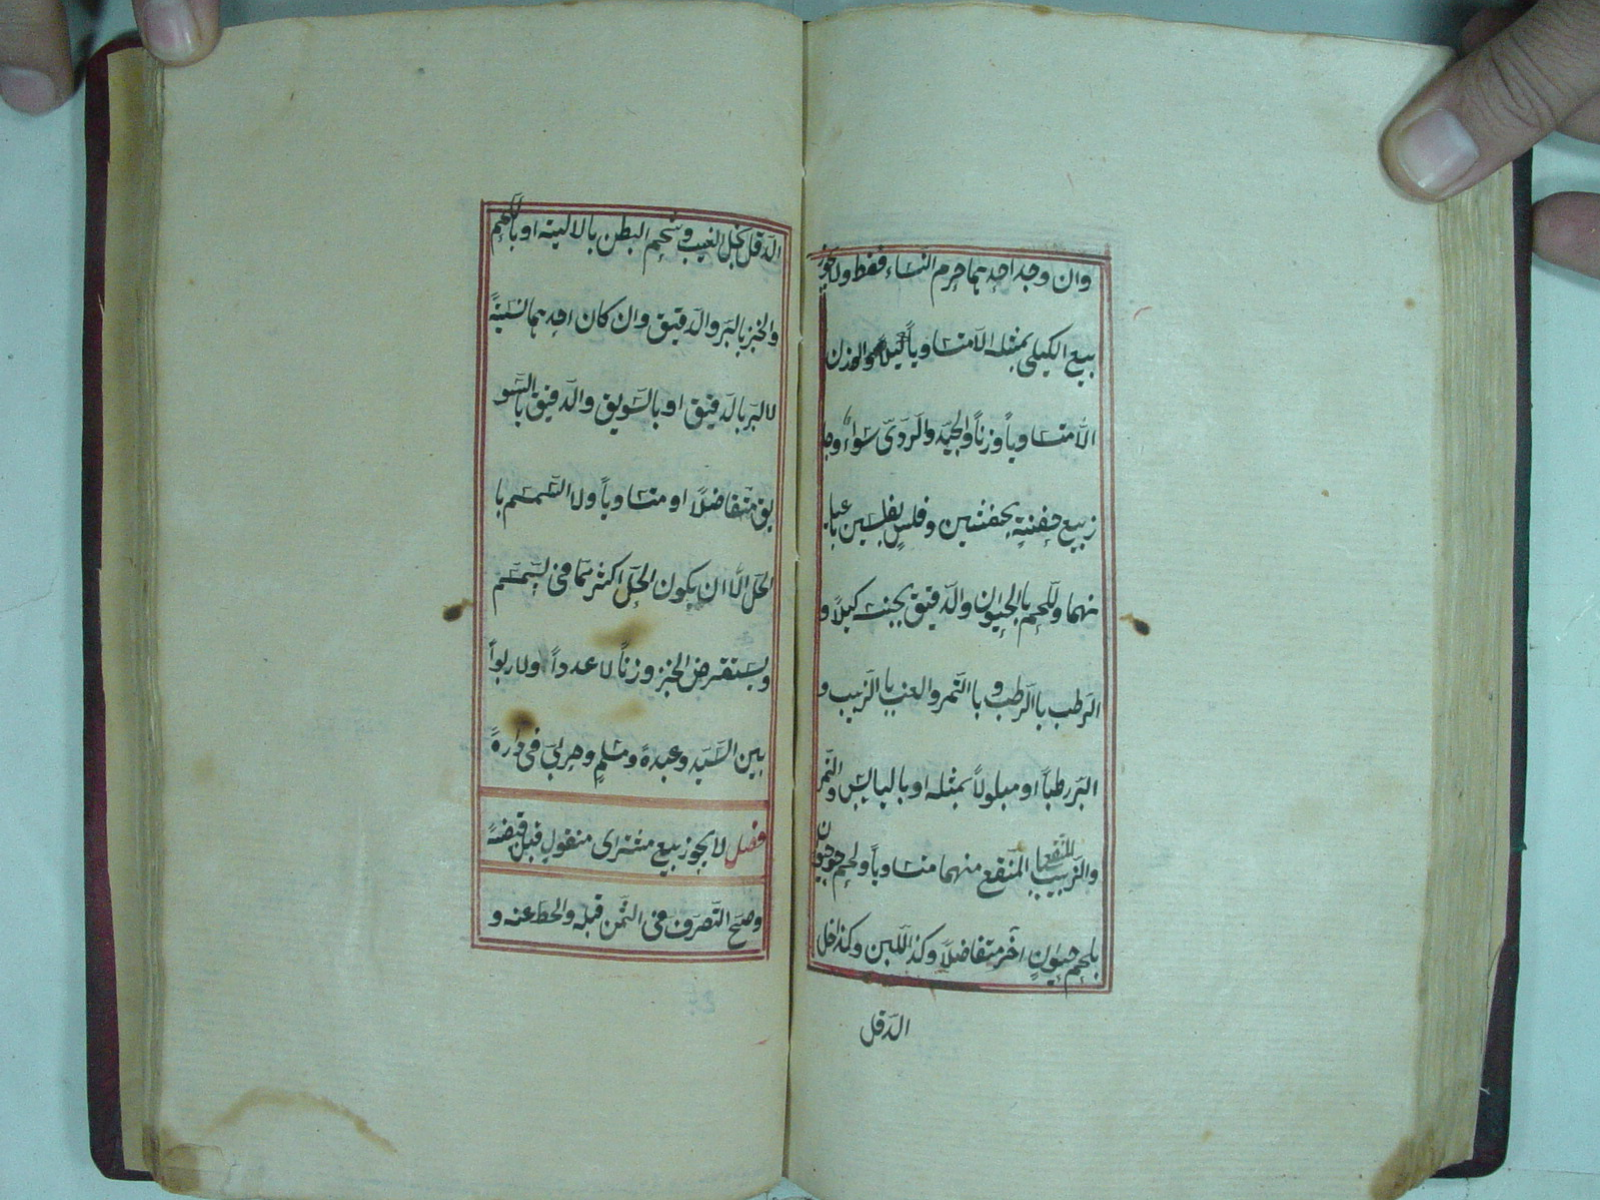 وان وجد احدهما حرم النساء فقط ولا يجوز
بيع الكيلى بمثله الا متساوياً كيلاً والوزن
الا متساوياً وزناً والجيّد والرّدىّ سواءٌ وجا
ز بيع حفنة بحفنتين وفلسٍ بفلسين عبا
نهما وللحم بالحيوان والدّقيق بجنسه كيلاً و
الرّطب باالرّطب و باالتّمر والعنب باالزّبيب و
البرّ رطباً او مبلولاً بمثله او باليابس والتّمر
والزّبيب المنقع باالمنقع منهما متساوياً ولحم حيون
بلحم حيوانٍ آخر متفاضلاً وكذ اللّبن وكذا خل
الدّقل
الدّقل بخل العنب وشحم البطن بالالية او باللّحم
والخبز بالبرّ والدّقيق وان كان احدهما نسيئةً
لا البرّ بالدّقيق او بالسّويق والدّقيق بالسّو
يق متفاضلاً او متساوياً ولا السّمسم با
لحلّ الّا ان يكون الحلّ اكثر ممّا فى السّمسم
ويستقرض الخبز وزناً لا عدداً ولا ربواً
بين السّيّد وعبدهٔ ومسلمٍ وحربىّ فى دارهٔ
فصل لا يجوز بيع مشترای منقولٍ قبل قبضهٔ
وصحّ التّصرّف فى الثّمن قبله والحط عنه و